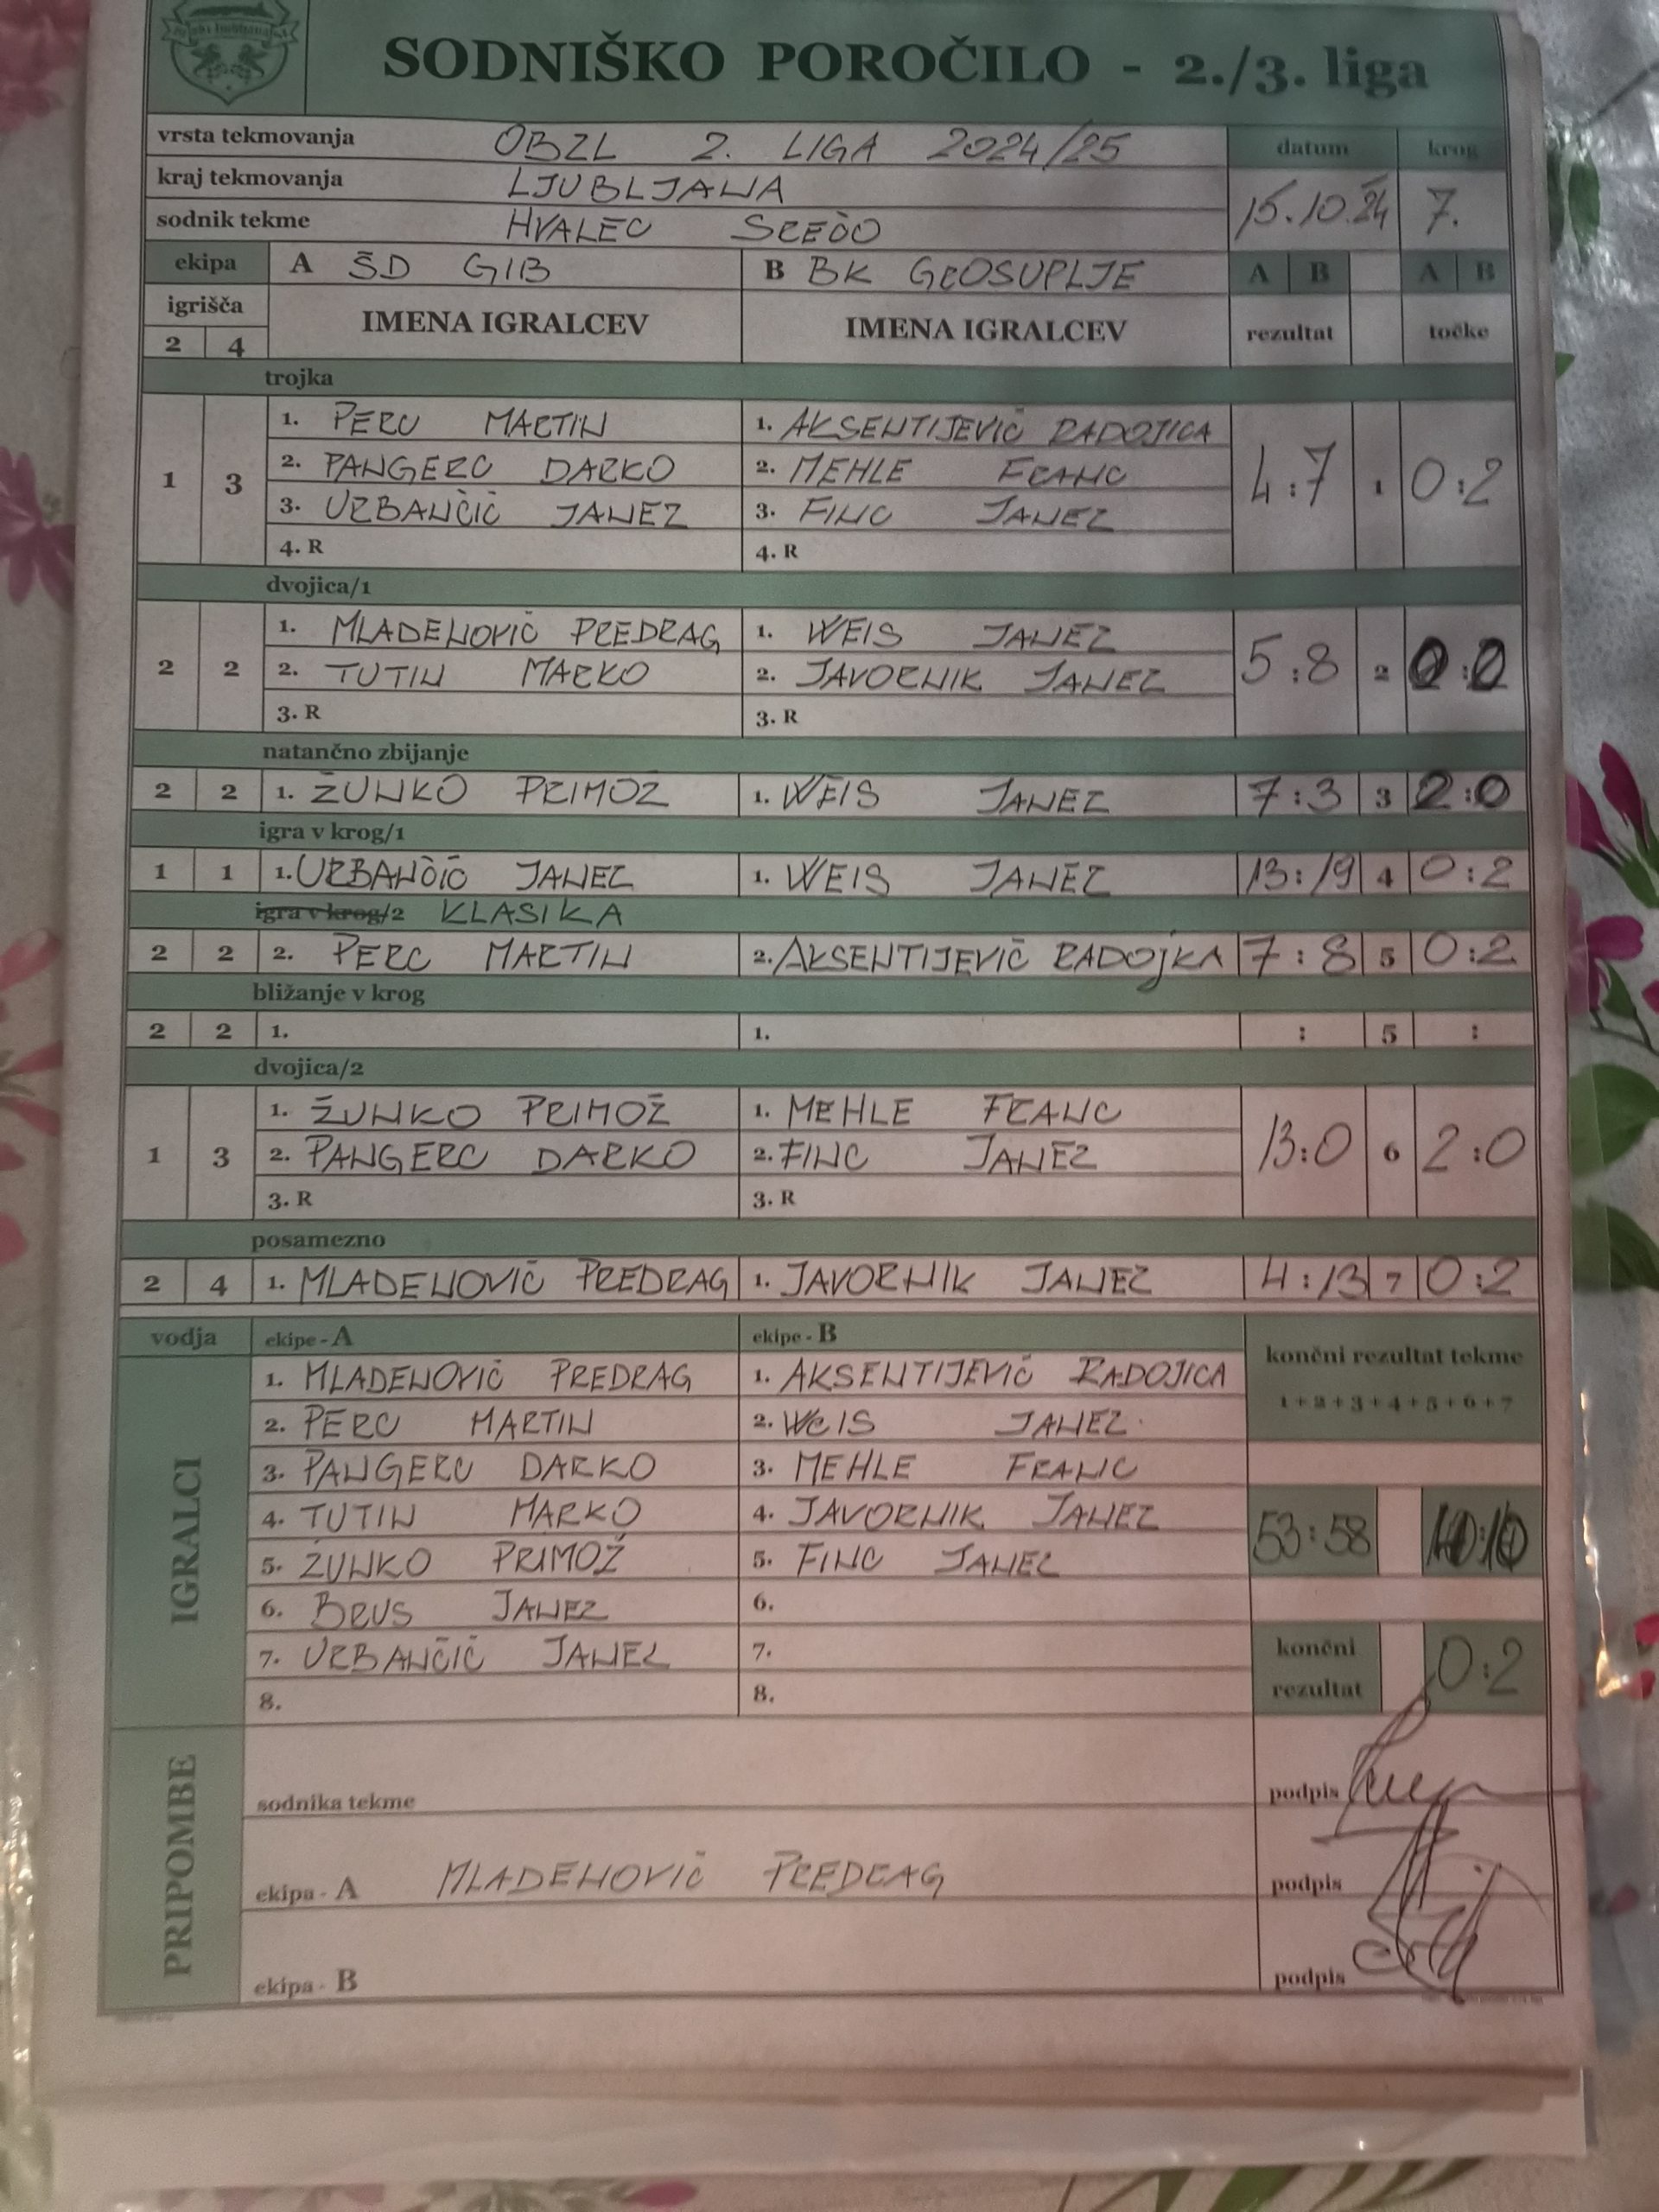 SODNIŠKO POROČILO - 2./3. liga
vrsta tekmovanja OBZL 2. LIGA 2024/25 datum krog
kraj tekmovanja LJUBLJANA 15.10.24 7.
sodnik tekme HVALEC SREČO
ekipa A ŠD GIB B BK GROSUPLJE A B A B
igrišča IMENA IGRALCEV IMENA IGRALCEV rezultat točke
2 4
trojka
1. PERC MARTIN 1. AKSENTIJEVIČ RADOJICA
1 3 2. PANGERC DARKO 2. MEHLE FRANC 4:7 1 0:2
3. URBANČIČ JANEZ 3. FINC JANEZ
4. R 4. R
dvojica/1
1. MLADENOVIČ PREDRAG 1. WEIS JANEZ
2 2 2. TUTIN MARKO 2. JAVORNIK JANEZ 5:8 2
3. R 3. R
natančno zbijanje
2 2 1. ŽUNKO PRIMOŽ 1. WEIS JANEZ 7:3 3 2:0
igra v krog/1
1 1 1. URBANČIČ JANEZ 1. WEIS JANEZ 13:19 4 0:2
igra v krog/2 KLASIKA
2 2 2. PERC MARTIN 2. AKSENTIJEVIČ RADOJKA 7:8 5 0:2
bližanje v krog
2 2 1. 1. : 5 :
dvojica/2
1. ŽUNKO PRIMOŽ 1. MEHLE FRANC
1 3 2. PANGERC DARKO 2. FINC JANEZ 13:0 6 2:0
3. R 3. R
posamezno
2 4 1. MLADENOVIČ PREDRAG 1. JAVORNIK JANEZ 4:13 7 0:2
vodja ekipe - A ekipe - B končni rezultat tekme
IGRALCI 1. MLADENOVIČ PREDRAG 1. AKSENTIJEVIČ RADOJICA 1+2+3+4+5+6+7
2. PERC MARTIN 2. WEIS JANEZ
3. PANGERC DARKO 3. MEHLE FRANC
4. TUTIN MARKO 4. JAVORNIK JANEZ 53:58
5. ŽUNKO PRIMOŽ 5. FINC JANEZ
6. BRUS JANEZ 6.
7. URBANČIČ JANEZ 7. končni rezultat 0:2
8. 8.
PRIPOMBE
sodnika tekme podpis
ekipa - A MLADENOVIČ PREDRAG podpis
ekipa - B podpis